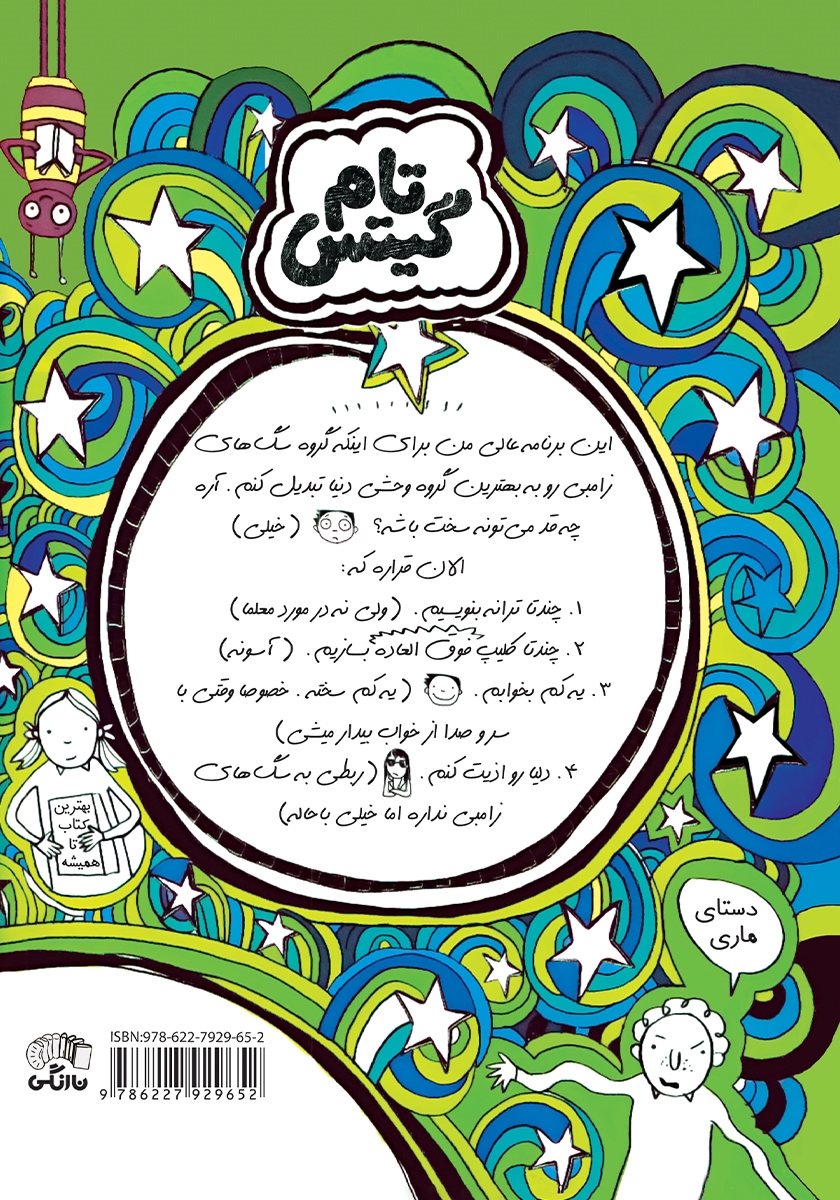 تام
گیتس
این برنامه عالی من برای اینکه گروه سگ‌های
زامبی رو به بهترین گروه وحشی دنیا تبدیل کنم. آره
چه قد می‌تونه سخت باشه؟ (خیلی)
الان قراره که:
۱. چندتا ترانه بنویسیم. (ولی نه در مورد معلما)
۲. چندتا کلیپ فوق العاده بسازیم. (آسونه)
۳. یه کم بخوابم. (یه کم سخته. خصوصا وقتی با
سر و صدا از خواب بیدار میشی)
۴. دلیا رو اذیت کنم. (ربطی به سگ‌های
زامبی نداره اما خیلی باحاله)
بهترین
کتاب
تا
همیشه
دستای
ماری
ISBN:978-622-7929-65-2
9 786227 929652
نارنگی